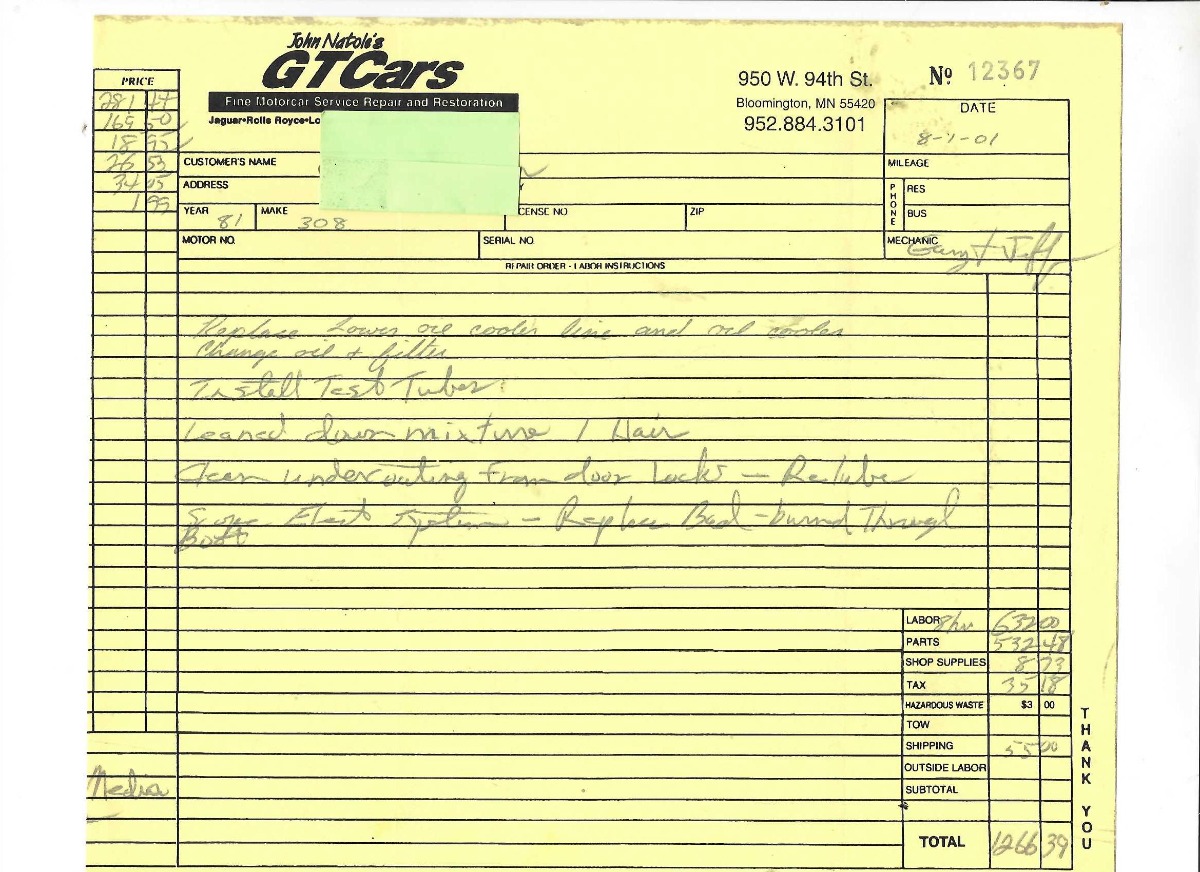 John Natole's
GTCars
Fine Motorcar Service Repair and Restoration
Jaguar•Rolls Royce•Lo
950 W. 94th St.
Bloomington, MN 55420
952.884.3101
Nº 12367
DATE
8-1-01
PRICE
281 44
169 50
18 95
26 53
34 05
1 99
CUSTOMER'S NAME
MILEAGE
ADDRESS
PHONE
RES
BUS
YEAR 81
MAKE 308
CENSE NO
ZIP
MOTOR NO.
SERIAL NO.
MECHANIC Gary + Jeff
REPAIR ORDER - LABOR INSTRUCTIONS
Replace Lower oil cooler line and oil cooler
Change oil + filter
Install Test Tubes
Leaned down mixture
Clean undercoating From door Locks - Relube
Elect System - Replace Bad - burned Through
Boot
LABOR 8hr 632 00
PARTS 532 48
SHOP SUPPLIES 8 73
TAX 35 18
HAZARDOUS WASTE $3 00
TOW
SHIPPING 55 00
OUTSIDE LABOR
SUBTOTAL
TOTAL 1266 39
Media
THANK YOU